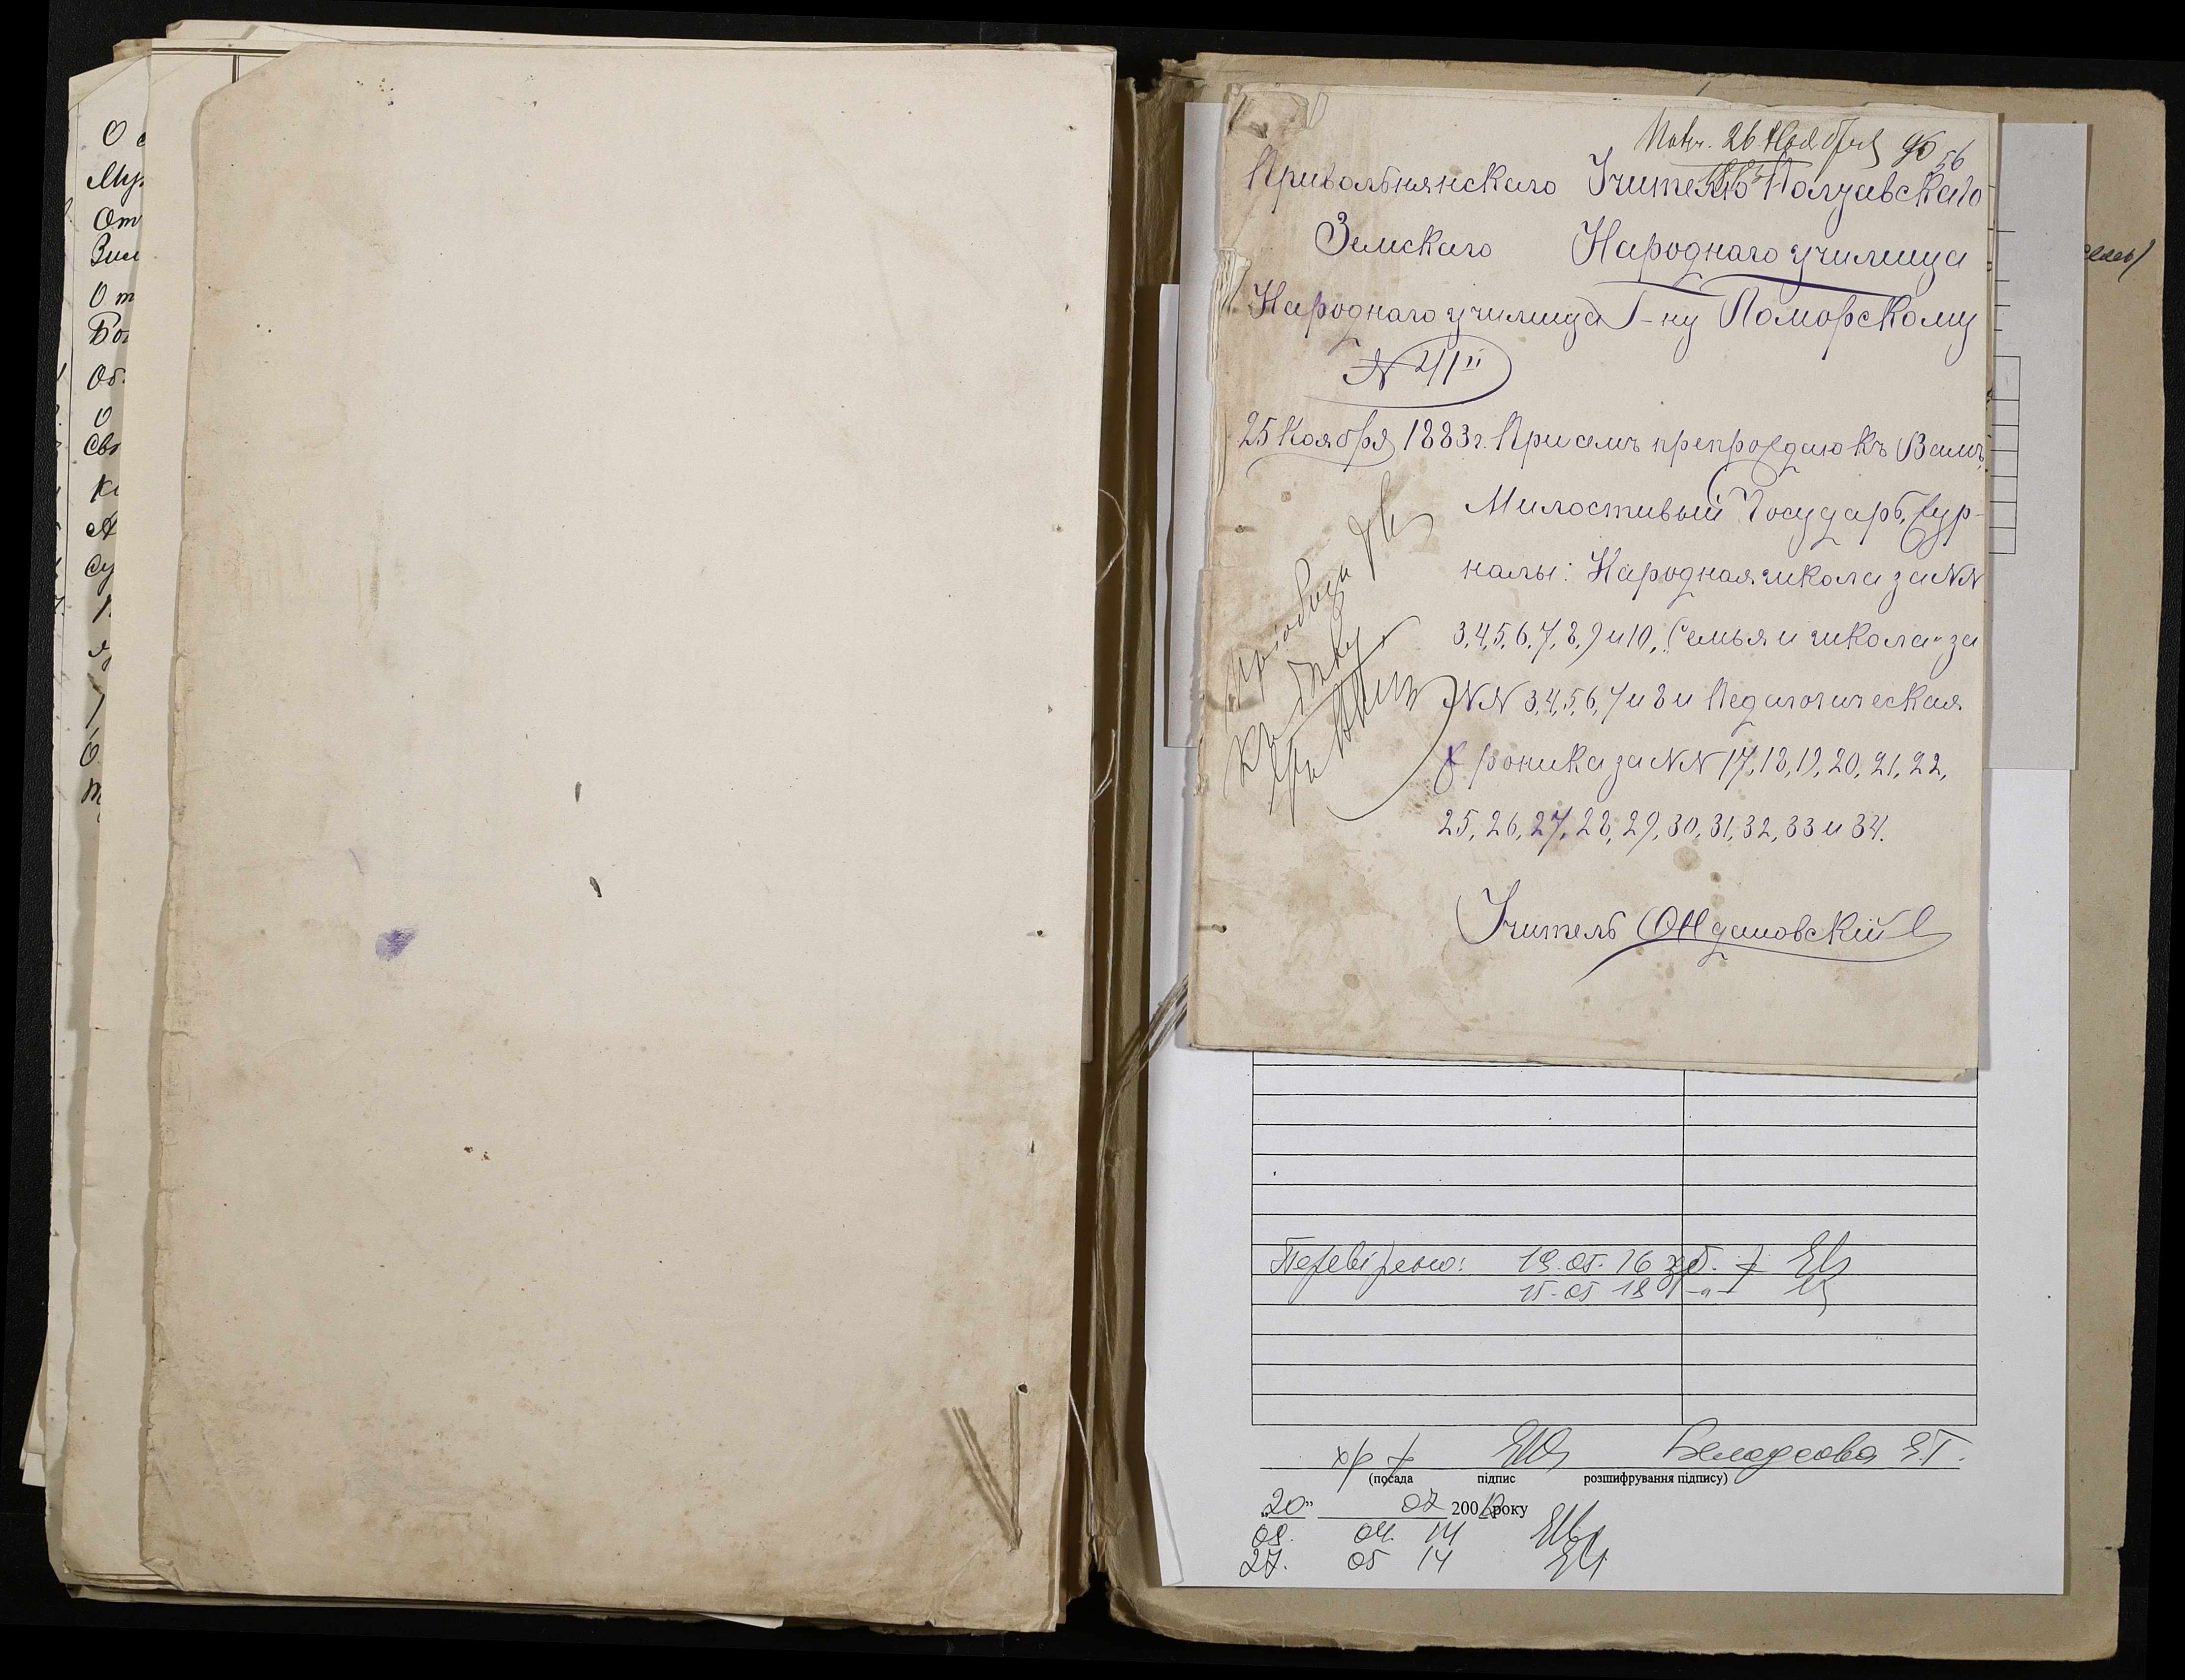 О
Муж
От
Зим
От
Бо
Об
О
Св
К
А
Су
Получ. 26 Ноября 96 56
1883
Привольнянскаго Учителю Полтавскаго
Земскаго Народнаго училища
Народнаго училища Г-ну Поморскому
N 41й
25 Ноября 1883 г. При семъ препровождаю къ Вамъ,
Милостивый Государь, Жур-
налы: Народная школа за NN
3, 4, 5, 6, 7, 8, 9 и 10, „Семья и школа" за
NN 3, 4, 5, 6, 7 и 8 и Педагогическая
Хроника за NN 17, 18, 19, 20, 21, 22,
25, 26, 27, 28, 29, 30, 31, 32, 33 и 34.
къ дѣлу
Учитель
Перевірено: 19.05.16
15.05 18 -"-
(посада підпис розшифрування підпису)
„20" 07 200 року
08. 04. 14
27. 05 14